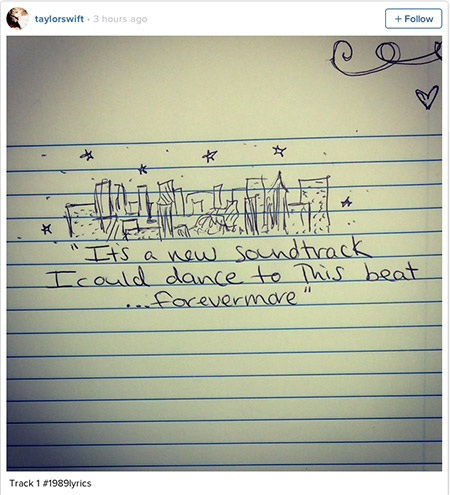 taylorswift · 3 hours ago
+ Follow
"It's a new soundtrack
I could dance to This beat
...forevermore"
Track 1 #1989lyrics